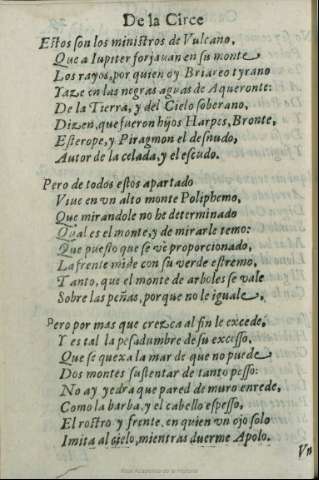 De la Circe
Estos son los ministros de Vulcano,
Que a Iupiter forjauan en su monte
Los rayos, por quien oy Briareo tyrano
Yaze en las negras aguas de Aqueronte:
De la Tierra, y del Cielo soberano,
Dizen, que fueron hijos Harpes, Bronte,
Esterope, y Piragmon el desnudo,
Autor de la celada, y el escudo.
Pero de todos estos apartado
Viue en vn alto monte Poliphemo,
Que mirandole no he determinado
Qual es el monte, y de mirarle temo:
Que puesto que se vè proporcionado,
La frente mide con su verde estremo,
Tanto, que el monte de arboles se vale
Sobre las peñas, porque no le iguale.
Pero por mas que crezca al fin le excede,
Y es tal la pesadumbre de su excesso,
Que se quexa la mar de que no puede
Dos montes sustentar de tanto pesso:
No ay yedra que pared de muro enrede,
Como la barba, y el cabello espesso,
El rostro y frente, en quien vn ojo solo
Imita al cielo, mientras duerme Apolo.
Vn
Real Academia de la Historia